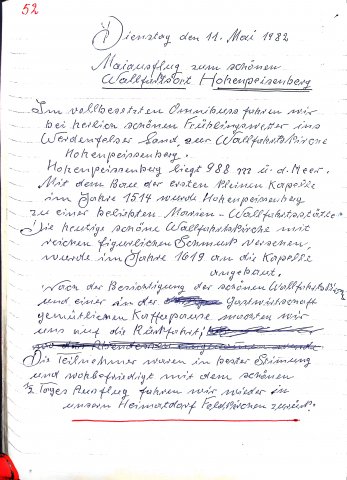 52
Dienstag den 11. Mai 1982
Maiausflug zum schönen
Wallfahrtsort Hohenpeisenberg
Im vollbesetzten Omnibuss fuhren wir
bei herlich schönen Frühlingswetter ins
Werdenfelser Land, zur Wallfahrtskirche
Hohenpeissenberg.
Hohenpeissenberg liegt 988 m ü. d. Meer.
Mit dem Baue der ersten kleinen Kapelle
im Jahre 1514 wurde Hohenpeisenberg
zu einer beliebten Marien-Wallfahrtsstätte.
Die heutige schöne Wallfahrtskirche mit
reichen figürlichen Schmuck versehen,
wurde im Jahre 1619 an die Kapelle
angebaut.
Nach der Besichtigung der schönen Wallfahrtskirche
und einer in der Gastwirtschaft
gemütlichen Kaffepause machten wir
uns auf die Rückfahrt,
Die Teilnehmer waren in bester Stimung
und wohbefriedigt mit dem schönen
1/2 Tages Ausflug fuhren wir wieder in
unsern Heimatdorf Feldkirchen zurück.